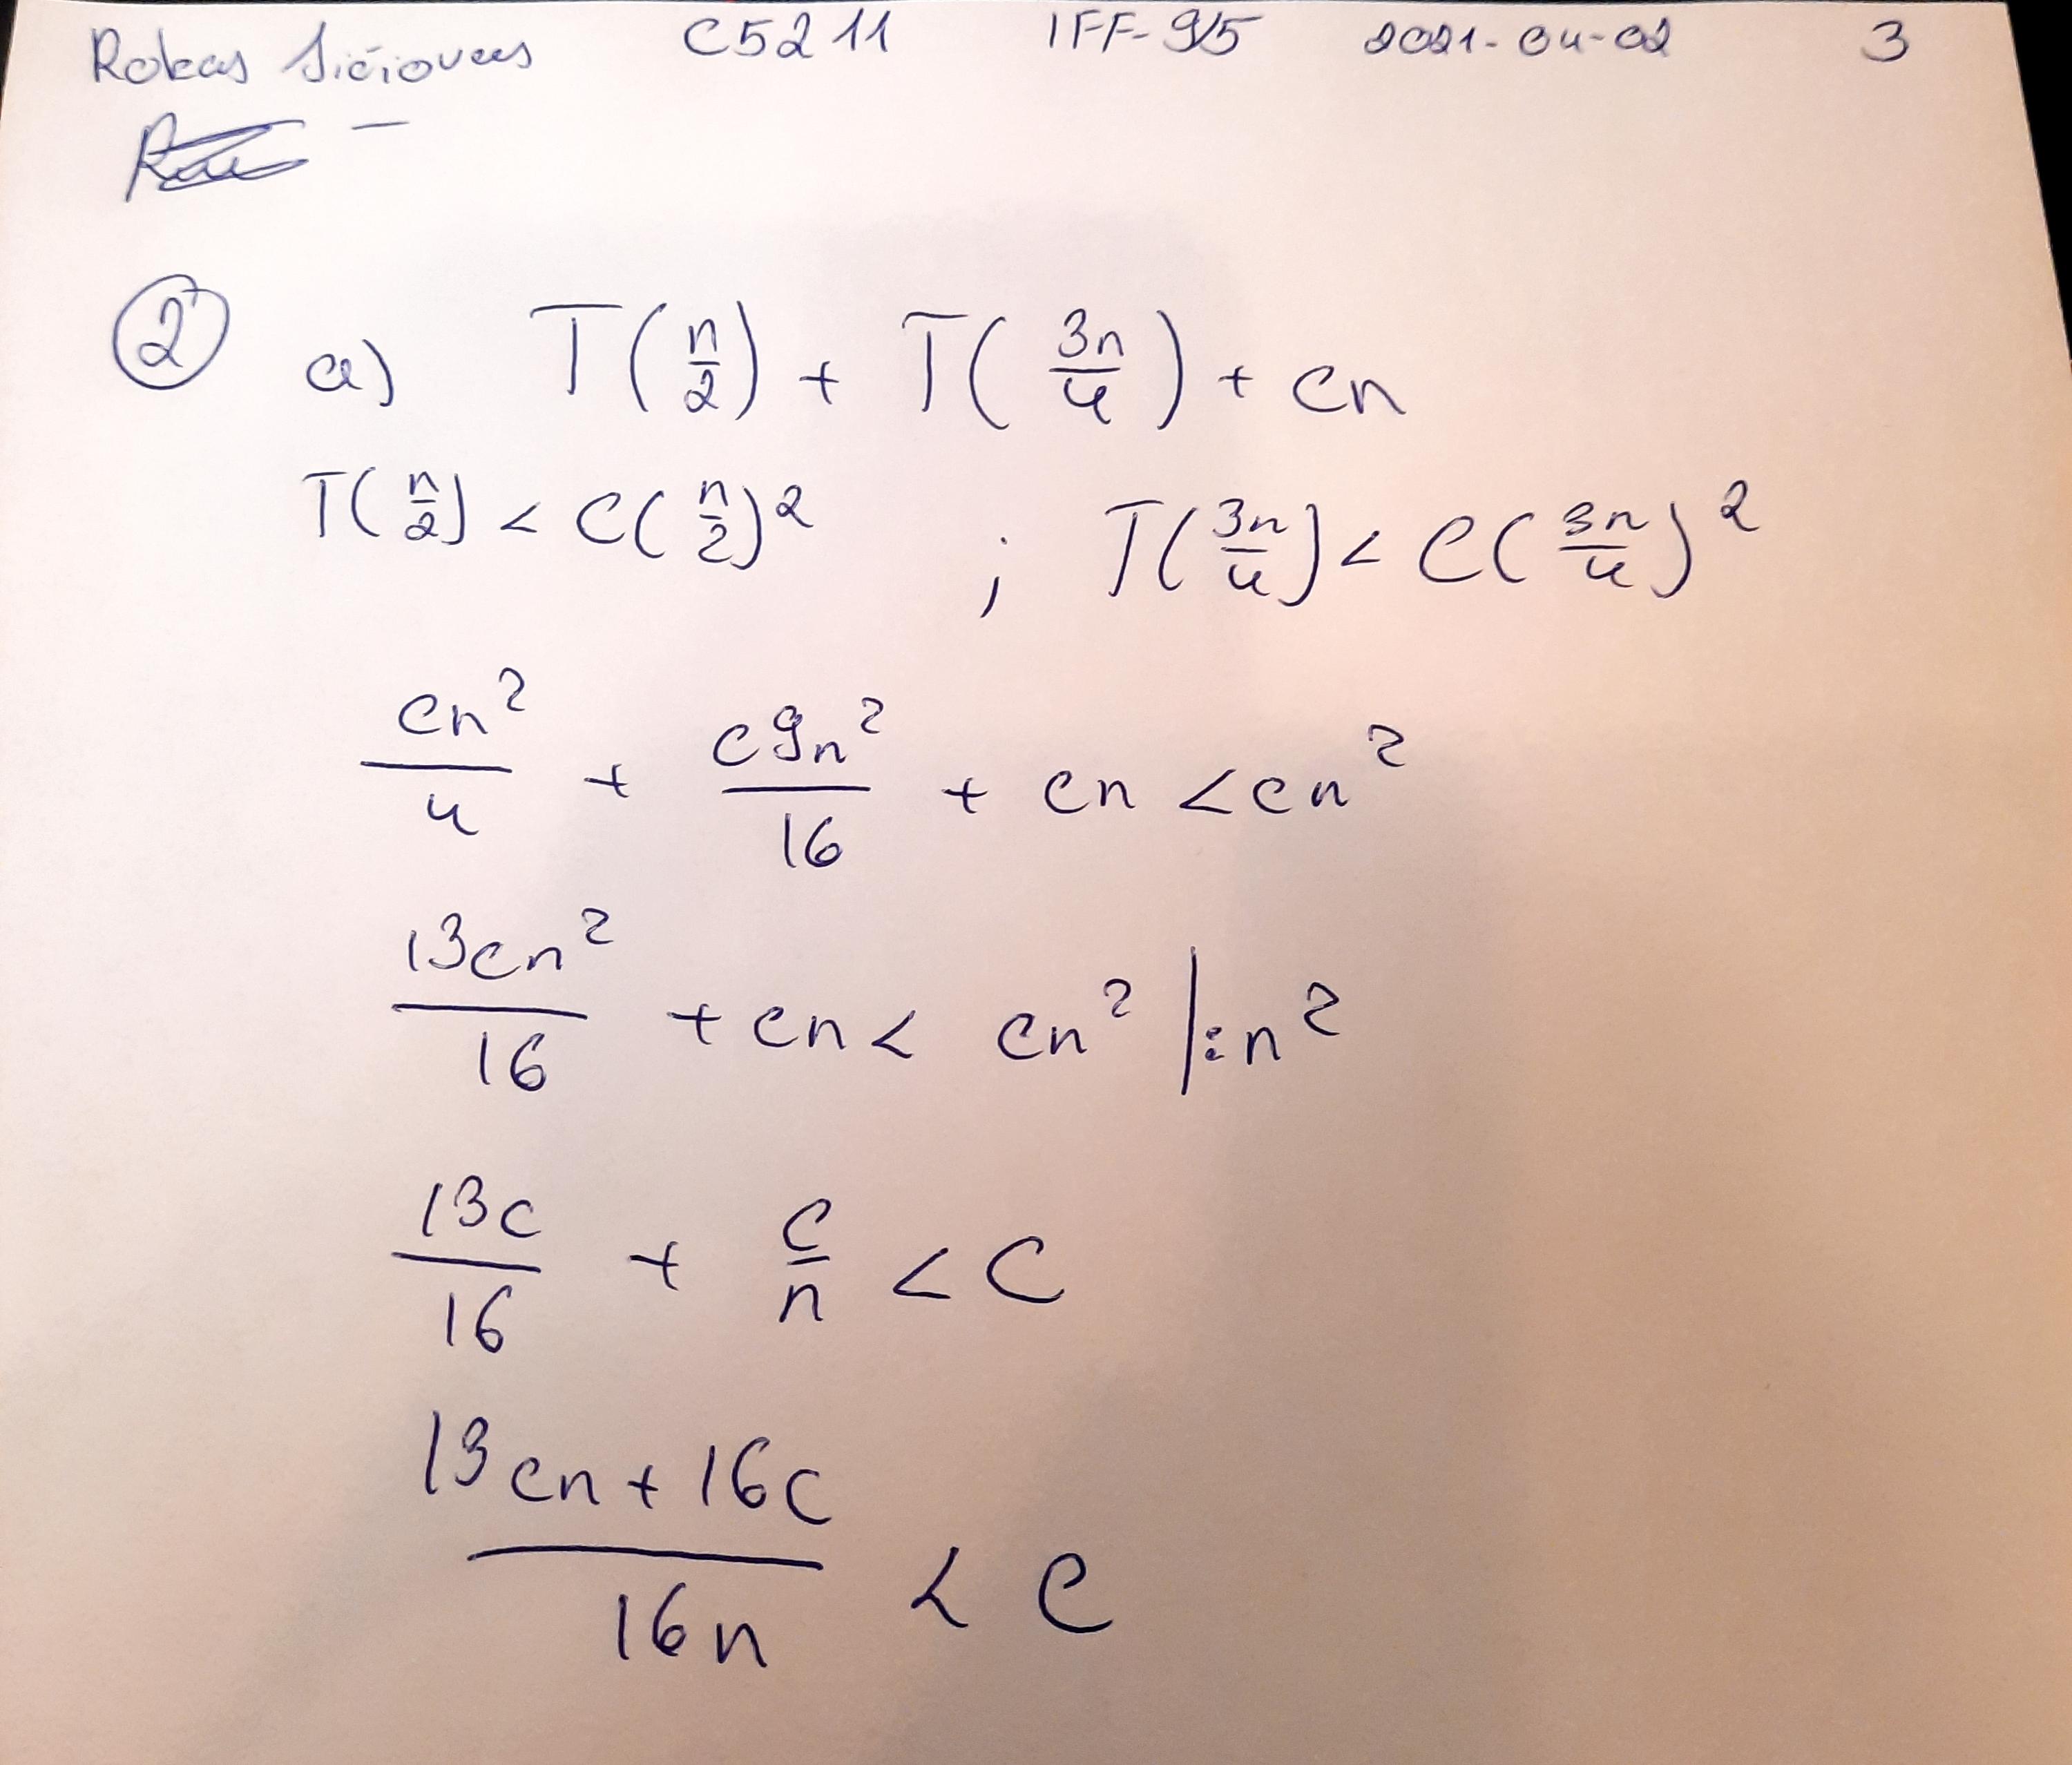 Rokas C5211 IFF-9/5 2021-04-02 3
2 a) T(n/2) + T(3n/4) + cn
T(n/2) < C(n/2)² ; T(3n/4) < C(3n/4)²
cn²/4 + c9n²/16 + cn < cn²
13cn²/16 + cn < cn² |:n²
13c/16 + c/n < C
(13cn + 16c)/16n < C